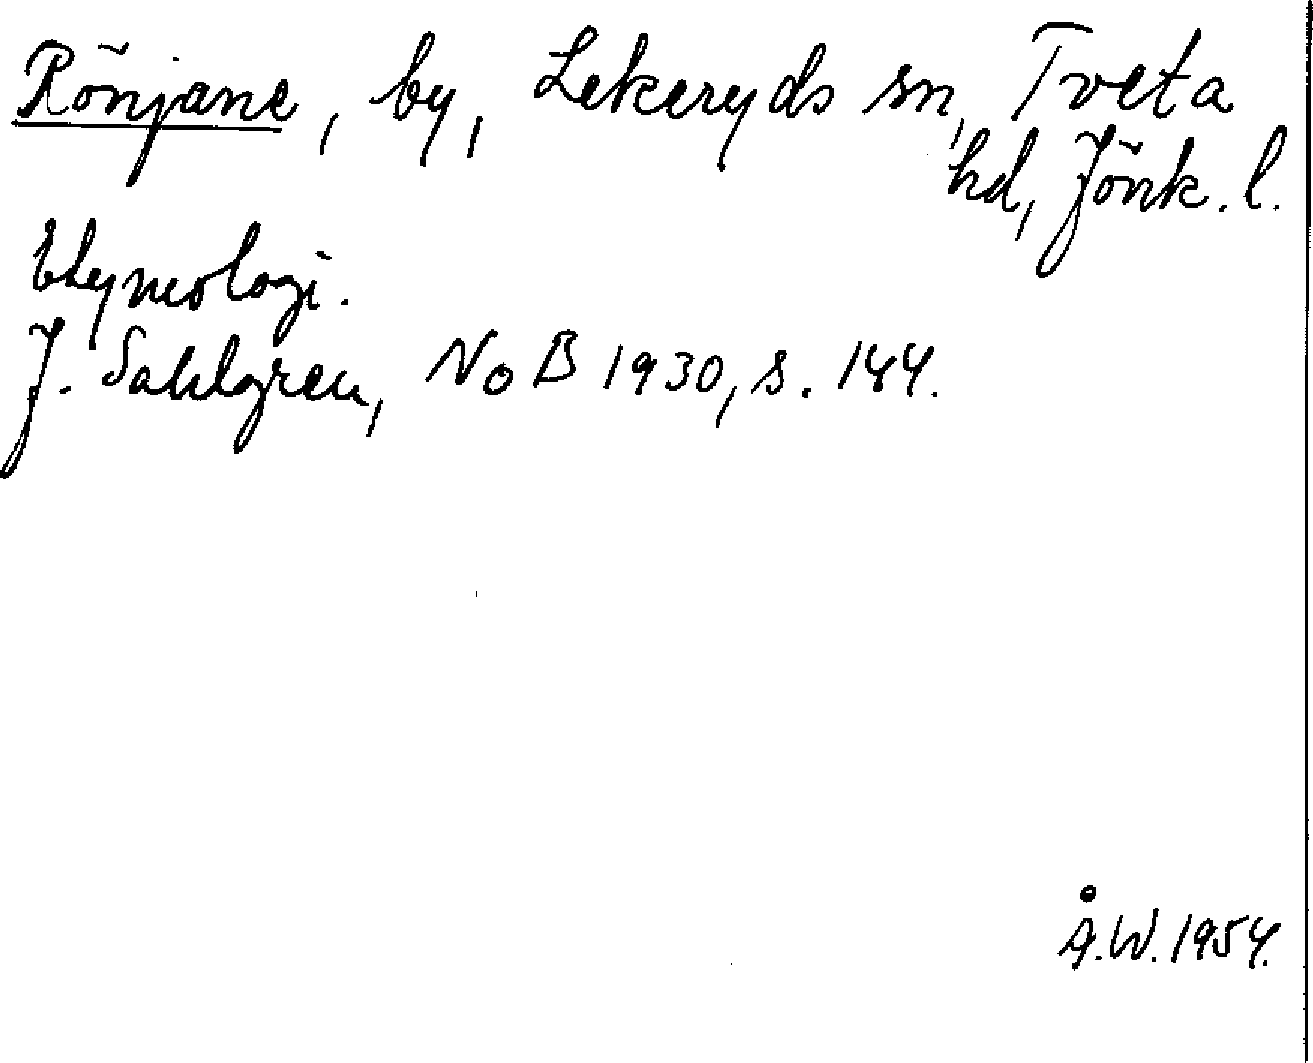 Rönjane, by, Lekeryds sn, Tveta
hd, Jönk. l.
Etymologi.
J. Sahlgren, NoB 1930, s. 144.
Å.W. 1954.